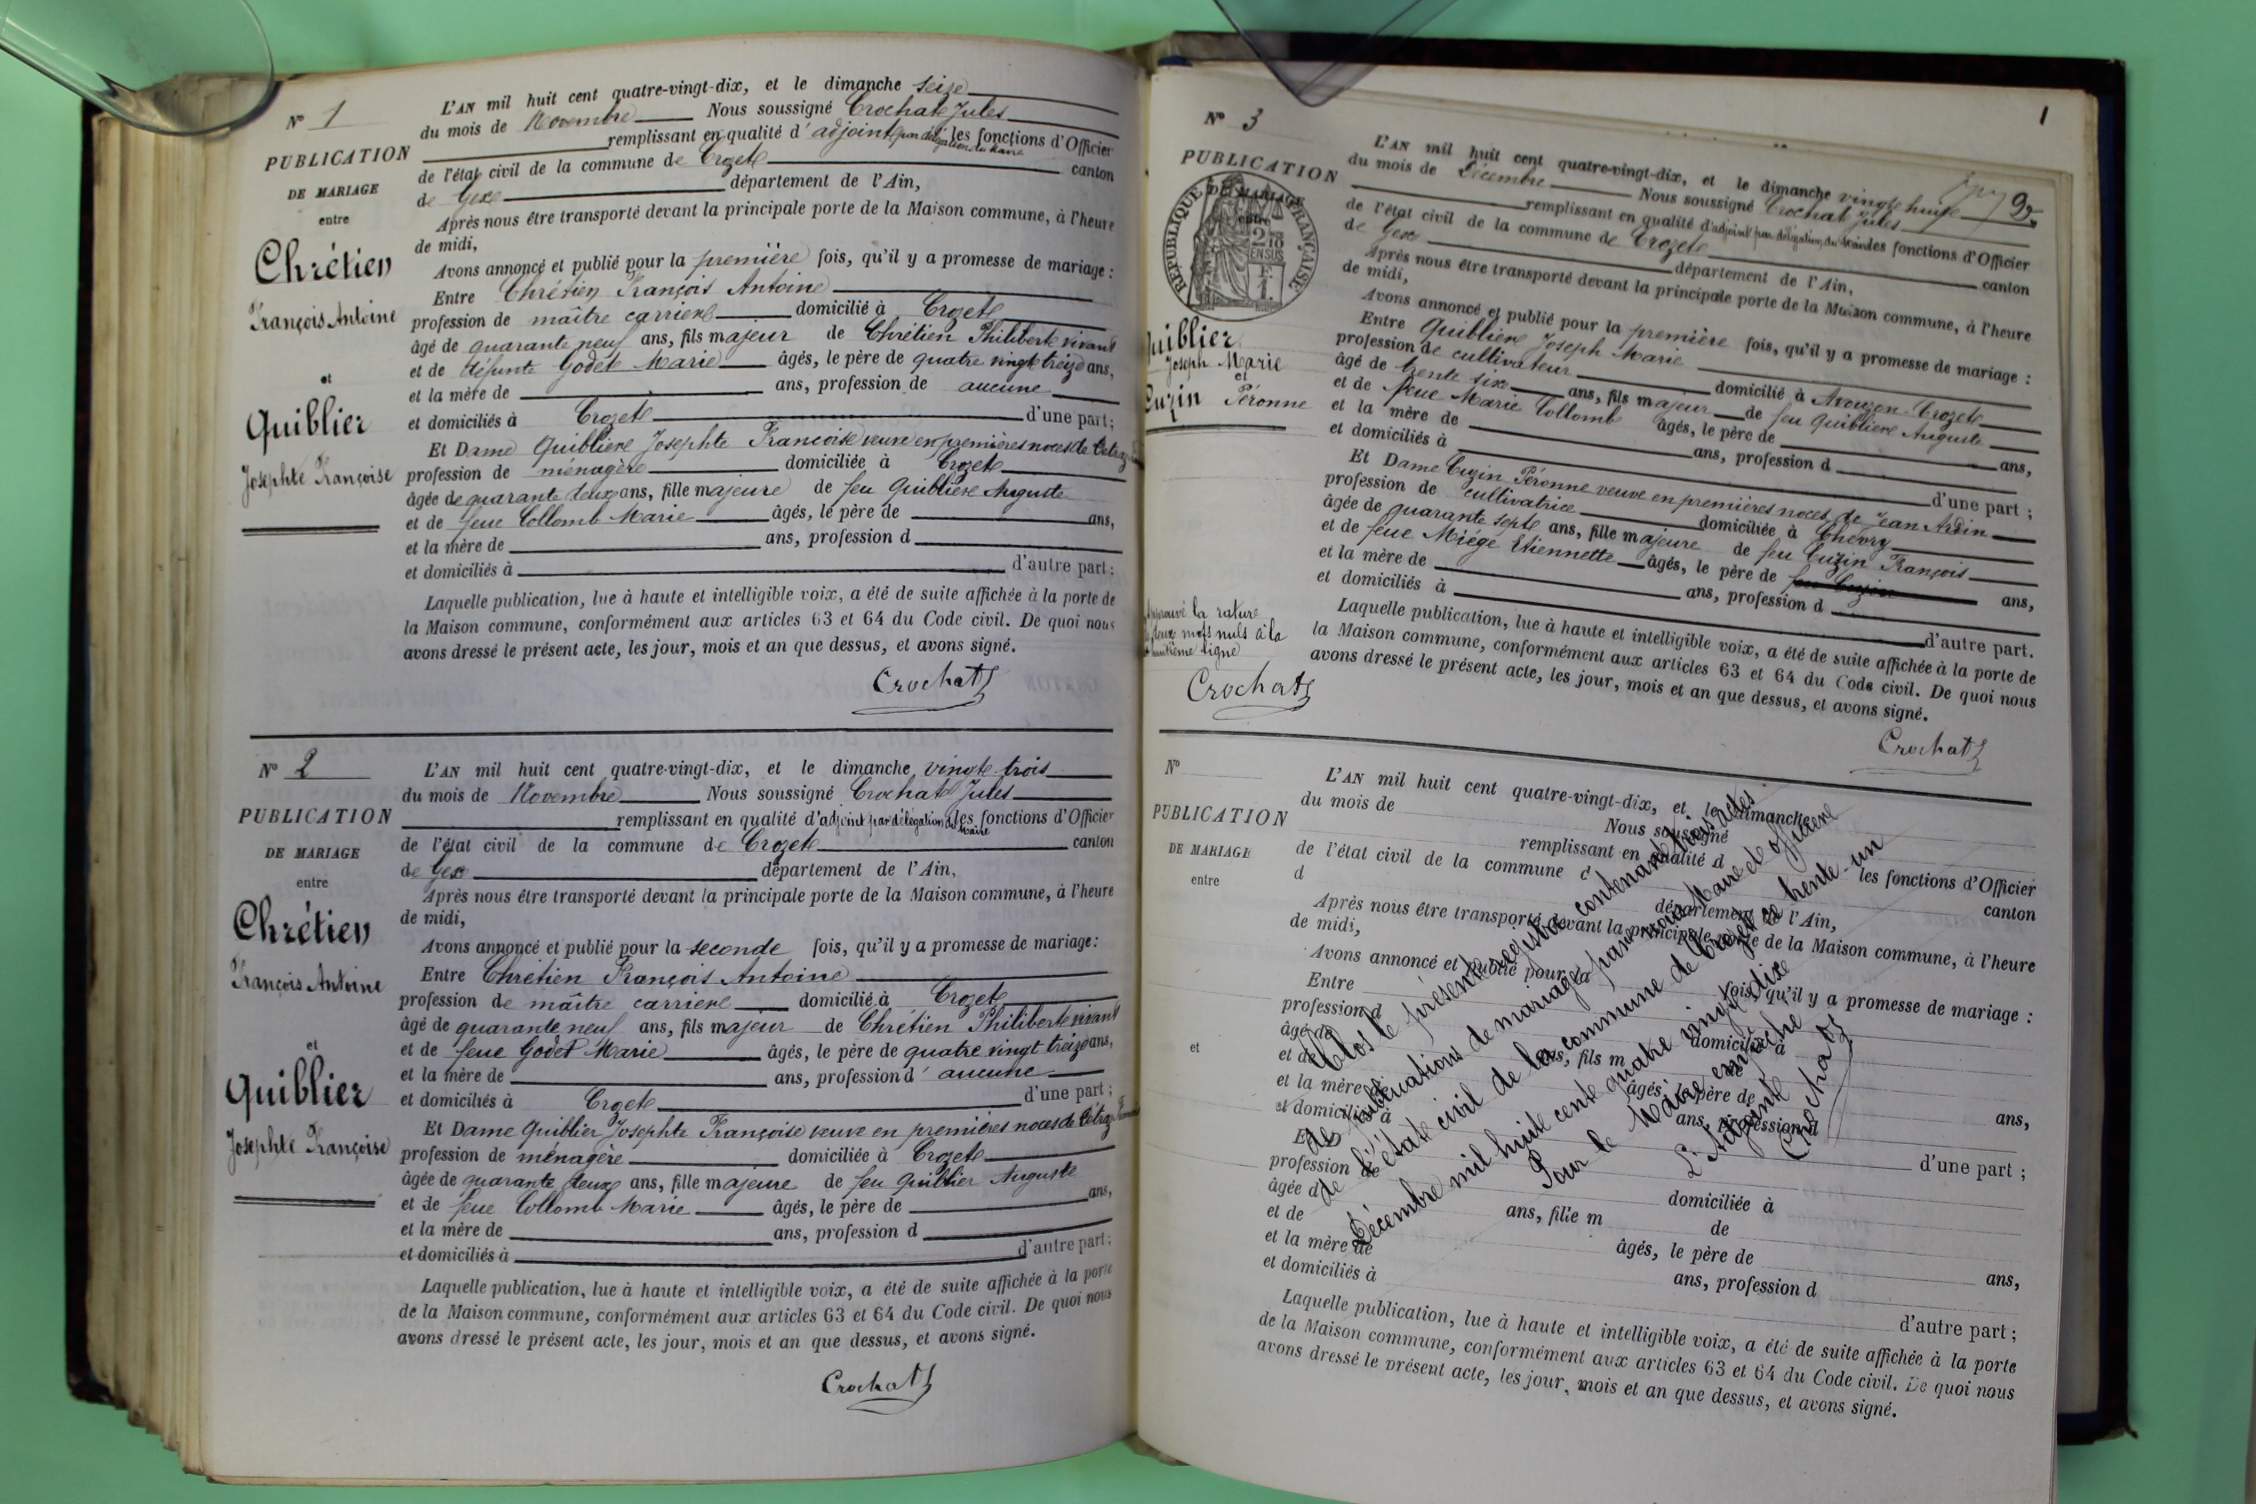 N° 1
PUBLICATION
DE MARIAGE
entre
Chrétien
François Antoine
et
Quiblier
Josephte Françoise
L'AN mil huit cent quatre-vingt-dix, et le dimanche seize
du mois de Novembre Nous soussigné Crochat Jules
remplissant en qualité d'adjoint par délégation du Maire les fonctions d'Officier
de l'état civil de la commune de Crozet canton
de Gex département de l'Ain,
Après nous être transporté devant la principale porte de la Maison commune, à l'heure
de midi,
Avons annoncé et publié pour la première fois, qu'il y a promesse de mariage :
Entre Chrétien François Antoine
profession de maître carrier domicilié à Crozet
âgé de quarante neuf ans, fils majeur de Chrétien Philibert vivant
et de défunte Godet Marie âgés, le père de quatre vingt treize ans,
et la mère de ans, profession de aucune
et domiciliés à Crozet d'une part;
Et Dame Quiblier Josephte Françoise veuve en premières noces de
profession de ménagère domiciliée à Crozet
âgée de quarante deux ans, fille majeure de feu Quiblier Auguste
et de feue Collomb Marie âgés, le père de ans,
et la mère de ans, profession d
et domiciliés à d'autre part;
Laquelle publication, lue à haute et intelligible voix, a été de suite affichée à la porte de
la Maison commune, conformément aux articles 63 et 64 du Code civil. De quoi nous
avons dressé le présent acte, les jour, mois et an que dessus, et avons signé.
Crochat
N° 2
PUBLICATION
DE MARIAGE
entre
Chrétien
François Antoine
et
Quiblier
Josephte Françoise
L'AN mil huit cent quatre-vingt-dix, et le dimanche vingt trois
du mois de Novembre Nous soussigné Crochat Jules
remplissant en qualité d'adjoint par délégation du Maire les fonctions d'Officier
de l'état civil de la commune de Crozet canton
de Gex département de l'Ain,
Après nous être transporté devant la principale porte de la Maison commune, à l'heure
de midi,
Avons annoncé et publié pour la seconde fois, qu'il y a promesse de mariage:
Entre Chrétien François Antoine
profession de maître carrier domicilié à Crozet
âgé de quarante neuf ans, fils majeur de Chrétien Philibert vivant
et de feue Godet Marie âgés, le père de quatre vingt treize ans,
et la mère de ans, profession d' aucune
et domiciliés à Crozet d'une part;
Et Dame Quiblier Josephte Françoise veuve en premières noces de
profession de ménagère domiciliée à Crozet
âgée de quarante deux ans, fille majeure de feu Quiblier Auguste
et de feue Collomb Marie âgés, le père de ans,
et la mère de ans, profession d
et domiciliés à d'autre part;
Laquelle publication, lue à haute et intelligible voix, a été de suite affichée à la porte
de la Maison commune, conformément aux articles 63 et 64 du Code civil. De quoi nous
avons dressé le présent acte, les jour, mois et an que dessus, et avons signé.
Crochat
1
N° 3
PUBLICATION
DE MARIAGE
entre
RÉPUBLIQUE FRANÇAISE
2/10 EN SUS
Quiblier
Joseph Marie
et
Cuzin Péronne
L'AN mil huit cent quatre-vingt-dix, et le dimanche vingt huit
du mois de Décembre Nous soussigné Crochat Jules
remplissant en qualité d'adjoint par délégation du Maire les fonctions d'Officier
de l'état civil de la commune de Crozet canton
de Gex département de l'Ain,
Après nous être transporté devant la principale porte de la Maison commune, à l'heure
de midi,
Avons annoncé et publié pour la première fois, qu'il y a promesse de mariage :
Entre Quiblier Joseph Marie
profession de cultivateur domicilié à Avouzon Crozet
âgé de trente six ans, fils majeur de feu Quiblier Auguste
et de feue Marie Collomb âgés, le père de ans,
et la mère de ans, profession d
et domiciliés à d'une part ;
Et Dame Cuzin Péronne veuve en premières noces de Jean Ardin
profession de cultivatrice domiciliée à Chevry
âgée de quarante sept ans, fille majeure de feu Cuzin François
et de feue Miège Etiennette âgés, le père de ans,
et la mère de ans, profession d
et domiciliés à d'autre part.
Laquelle publication, lue à haute et intelligible voix, a été de suite affichée à la porte de
la Maison commune, conformément aux articles 63 et 64 du Code civil. De quoi nous
avons dressé le présent acte, les jour, mois et an que dessus, et avons signé.
Crochat
Approuvé la rature
de deux mots nuls à la
huitième ligne
Crochat
N°
PUBLICATION
DE MARIAGE
entre
et
L'AN mil huit cent quatre-vingt-dix, et le dimanche
du mois de Nous soussigné
remplissant en qualité d les fonctions d'Officier
de l'état civil de la commune d canton
d département de l'Ain,
Après nous être transporté devant la principale porte de la Maison commune, à l'heure
de midi,
Avons annoncé et publié pour la fois, qu'il y a promesse de mariage :
Entre
profession d domicilié à
âgé de ans, fils m de
et de âgés, le père de ans,
et la mère de ans, profession d
et domiciliés à d'une part ;
Et D
profession de domiciliée à
âgée d ans, fille m de
et de âgés, le père de ans,
et la mère de ans, profession d
et domiciliés à d'autre part ;
Laquelle publication, lue à haute et intelligible voix, a été de suite affichée à la porte
de la Maison commune, conformément aux articles 63 et 64 du Code civil. De quoi nous
avons dressé le présent acte, les jour, mois et an que dessus, et avons signé.
Clos le présent registre contenant trois actes
de publications de mariages par nous Maire et officier
de l'état civil de la commune de Crozet ce trente-un
Décembre mil huit cent quatre vingt dix
Pour le Maire empêché
L'Adjoint
Crochat